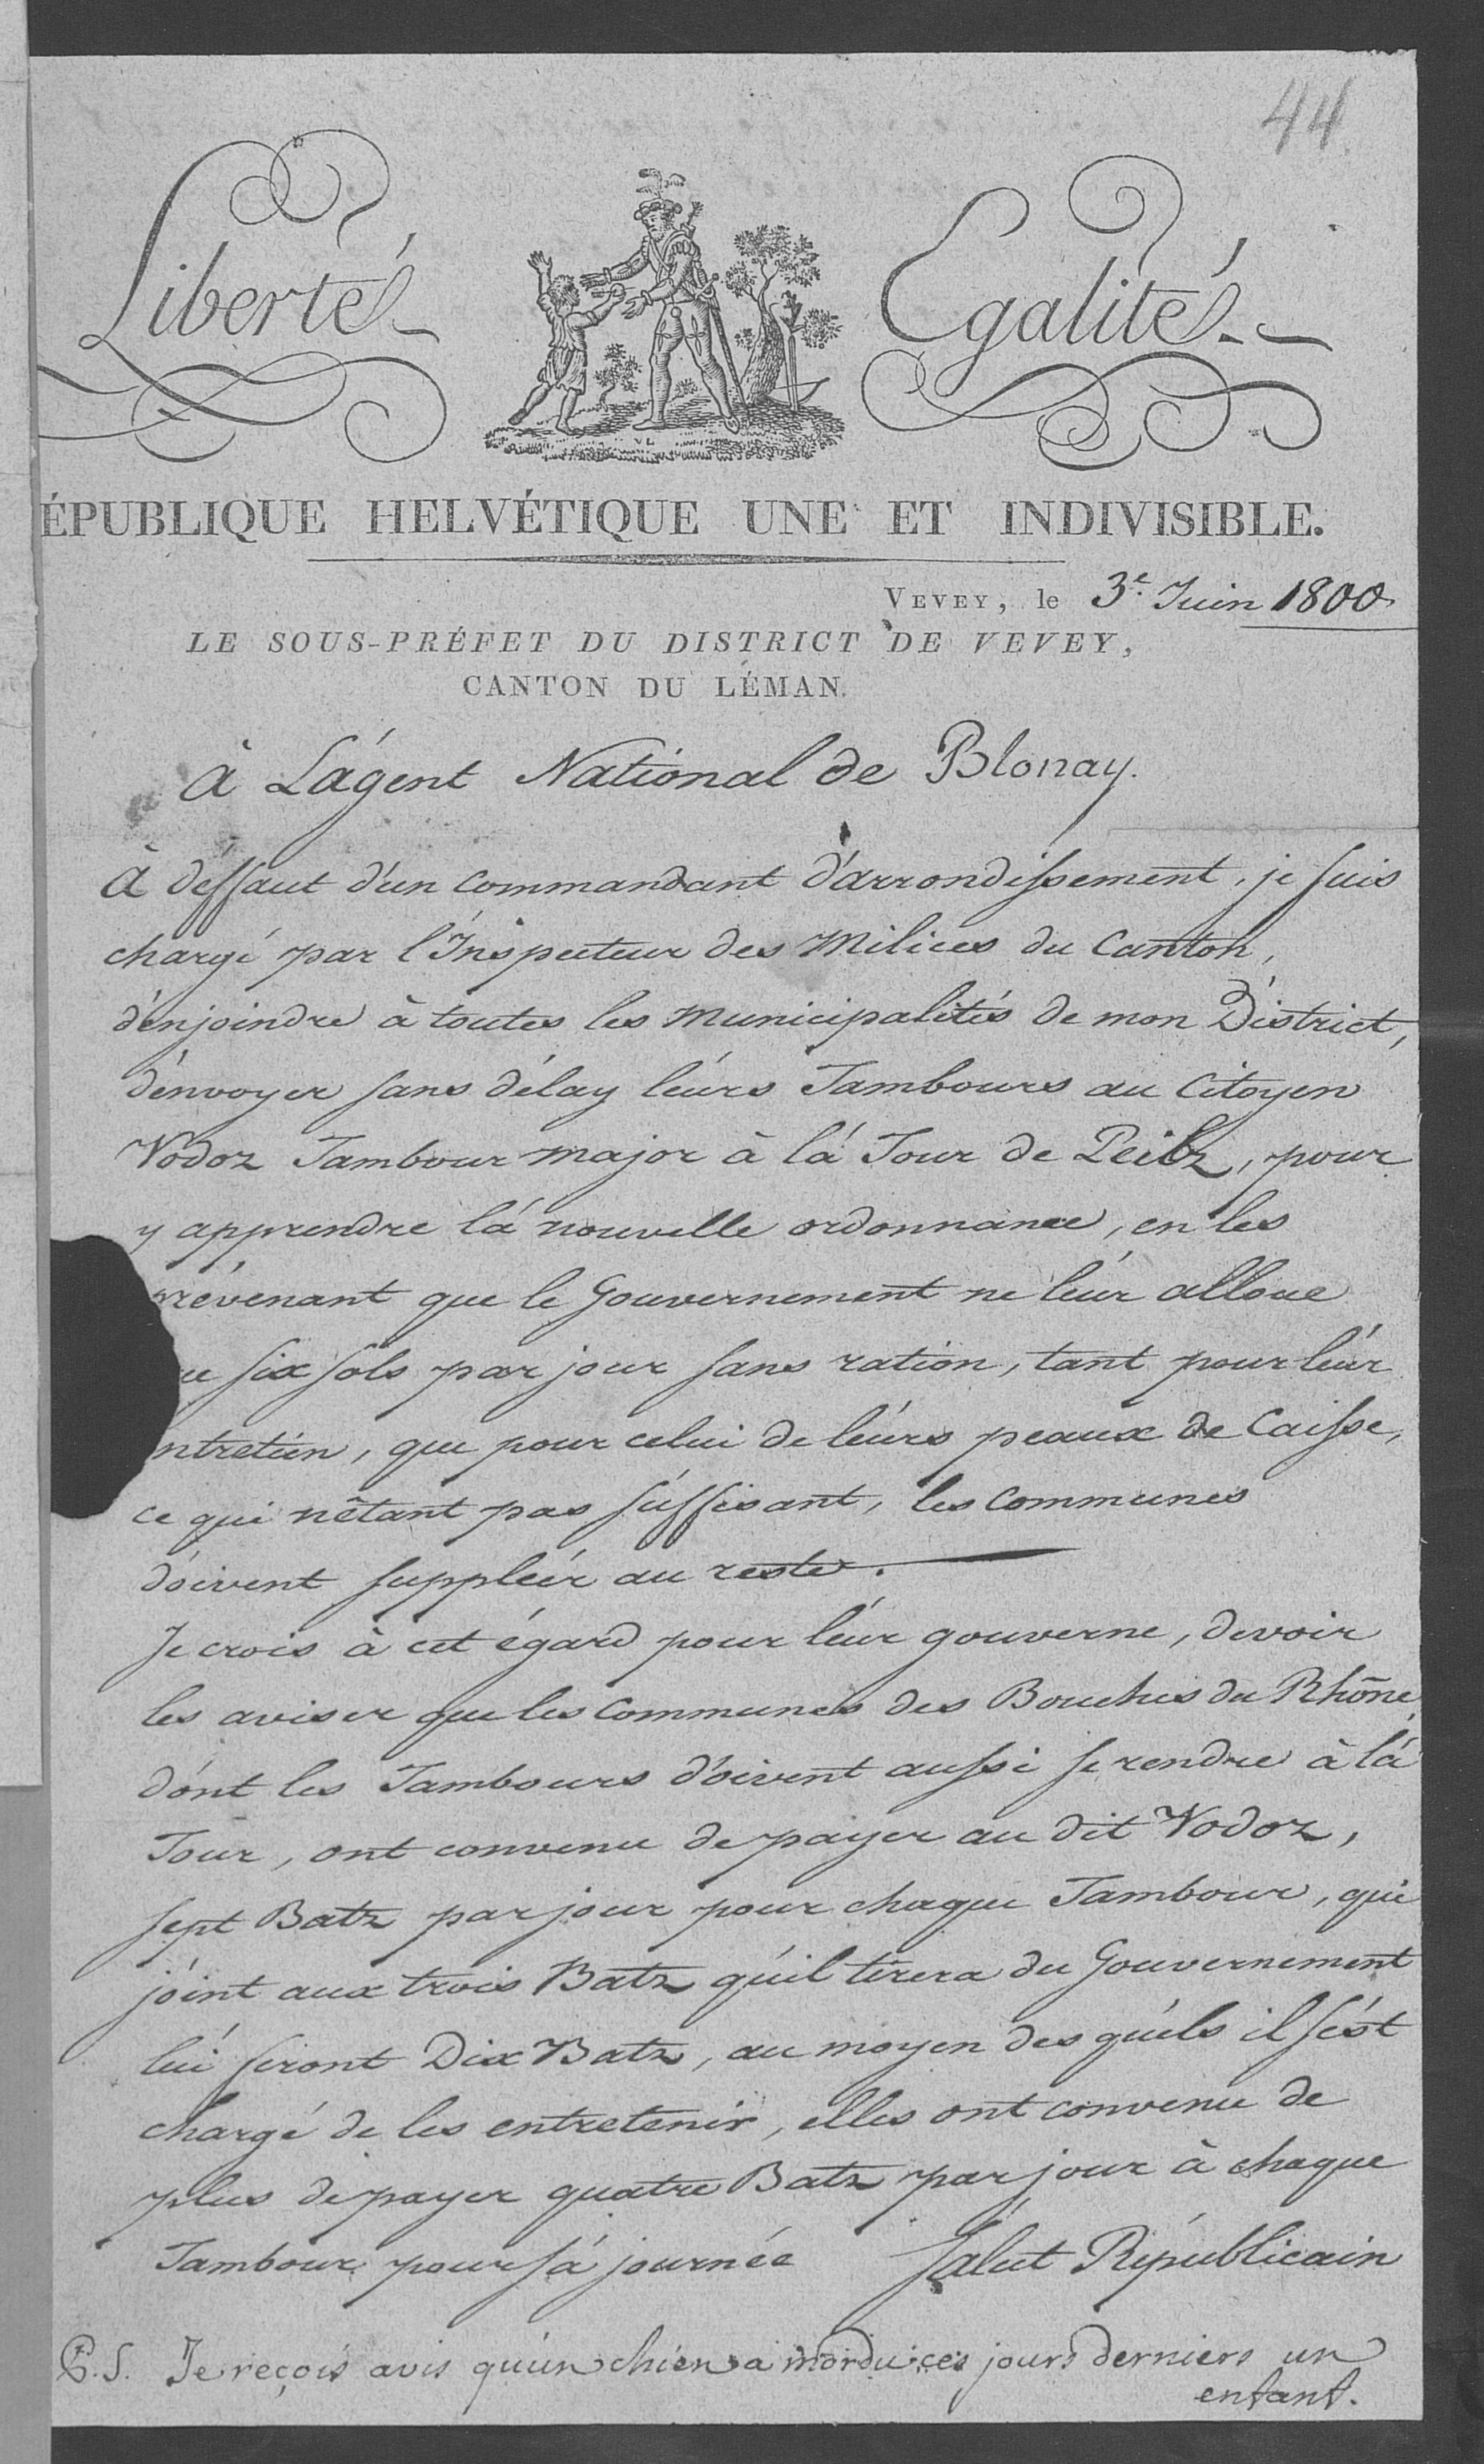 44
Liberté Egalité
ÉPUBLIQUE HELVÉTIQUE UNE ET INDIVISIBLE.
VEVEY, le 3.e Juin 1800
LE SOUS-PRÉFET DU DISTRICT DE VEVEY,
CANTON DU LÉMAN.
à L'ágent National de Blonay.
à déffaut d'un commandant d'arrondissement, je suis
chargé par l'Inspecteur des Milices du Canton,
d'enjoindre à toutes les Municipalités de mon District,
d'envoyer sans délay leurs Tambours au Citoyen
Vodoz Tambour major à lá Tour de Peilz, pour
y apprendre lá nouvelle ordonnance, en les
révenant que le Gouvernement ne leur alloue
ue six sols par jour sans ration, tant pour leur
ntretien, que pour celui de leurs peaux de Caisse,
ce qui n'étant pas suffisant, les Communes
doivent suppléer au reste.
Je crois à cet égard pour leur gouverne, devoir
les aviser que les Communes des Bouches du Rhône,
dont les Tambours doivent aussi se rendre à lá
Tour, ont convenu de payer au dit Vodoz,
sept Batz par jour pour chaque Tambour, qui
joint aux trois Batz qu'il tirera du Gouvernement
lui seront Dix Batz, au moyen des quels il s'est
chargé de les entretenir, elles ont convenu de
plus de payer quatre Batz par jour à chaque
Tambour pour sá journée Salut Républicain
P.S. Je reçois avis qu'un chien a mordu ces jours derniers un
enfant.